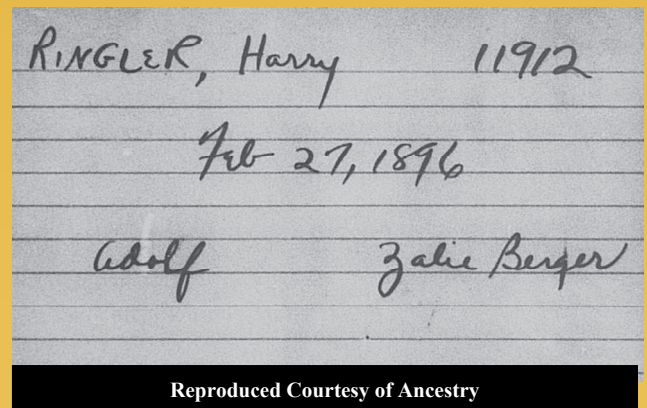 RINGLER, Harry 11912
Feb 27, 1896
Adolf Zalie Berger
Reproduced Courtesy of Ancestry